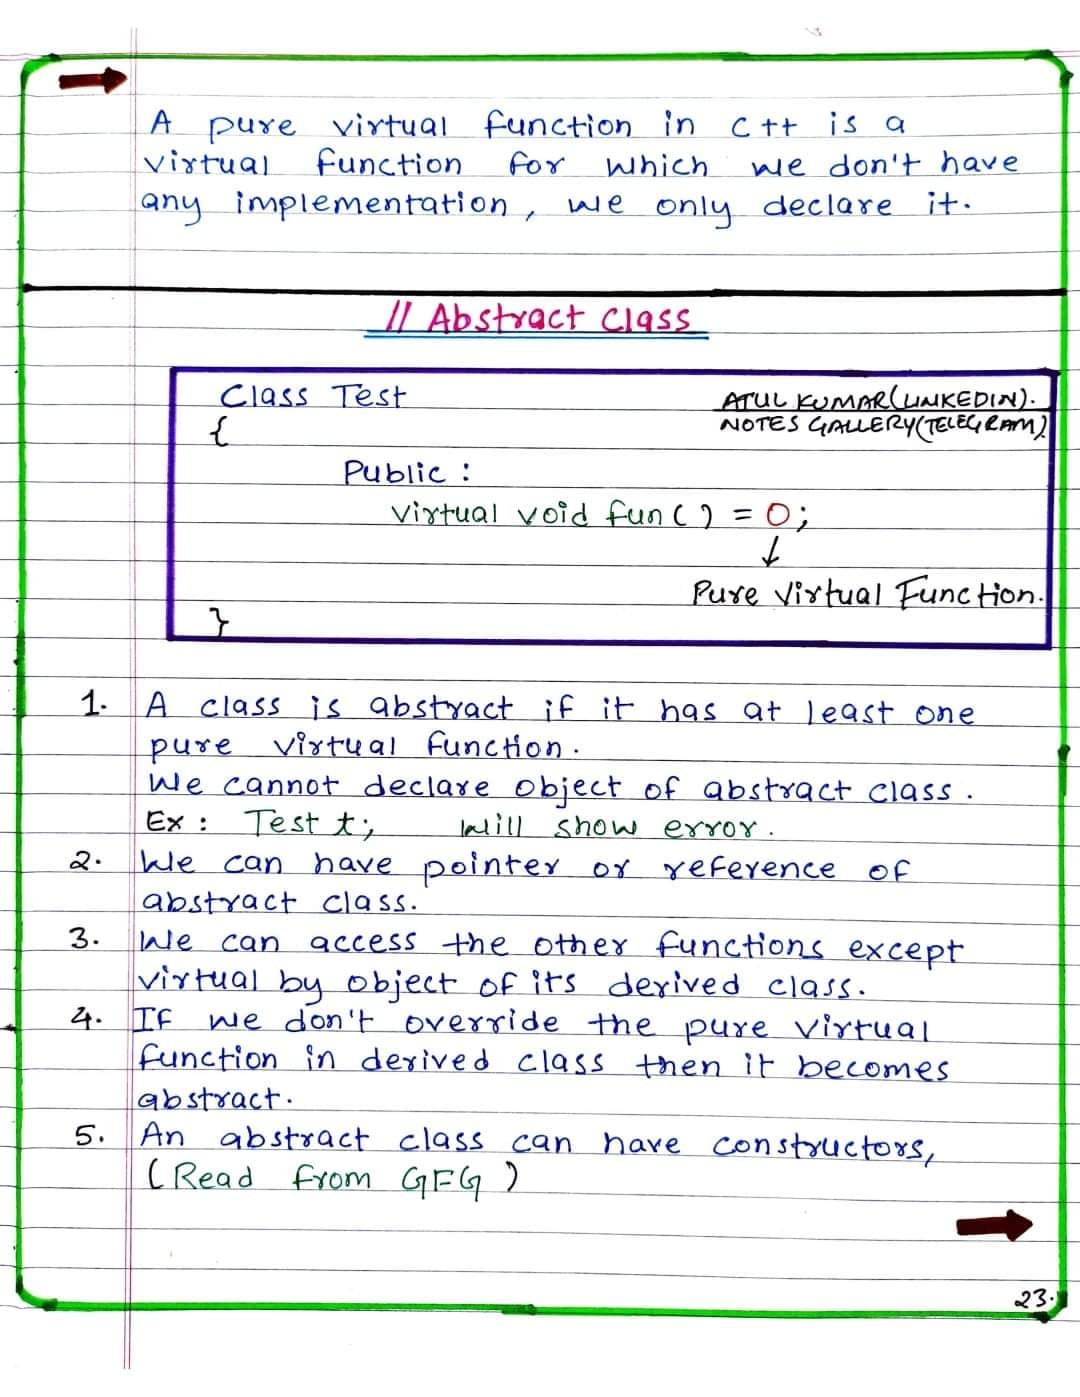 A pure virtual function in C++ is a
virtual function for which we don't have
any implementation, we only declare it.
// Abstract Class
Class Test
ATUL KUMAR(LINKEDIN).
{
NOTES GALLERY(TELEGRAM)
Public :
virtual void fun() = 0;
↓
Pure Virtual Function.
}
1. A class is abstract if it has at least one
pure virtual function.
We cannot declare object of abstract class.
Ex : Test t; Will show error.
2. We can have pointer or reference of
abstract class.
3. We can access the other functions except
virtual by object of its derived class.
4. If we don't override the pure virtual
function in derived class then it becomes
abstract.
5. An abstract class can have constructors,
(Read from GFG)
23.